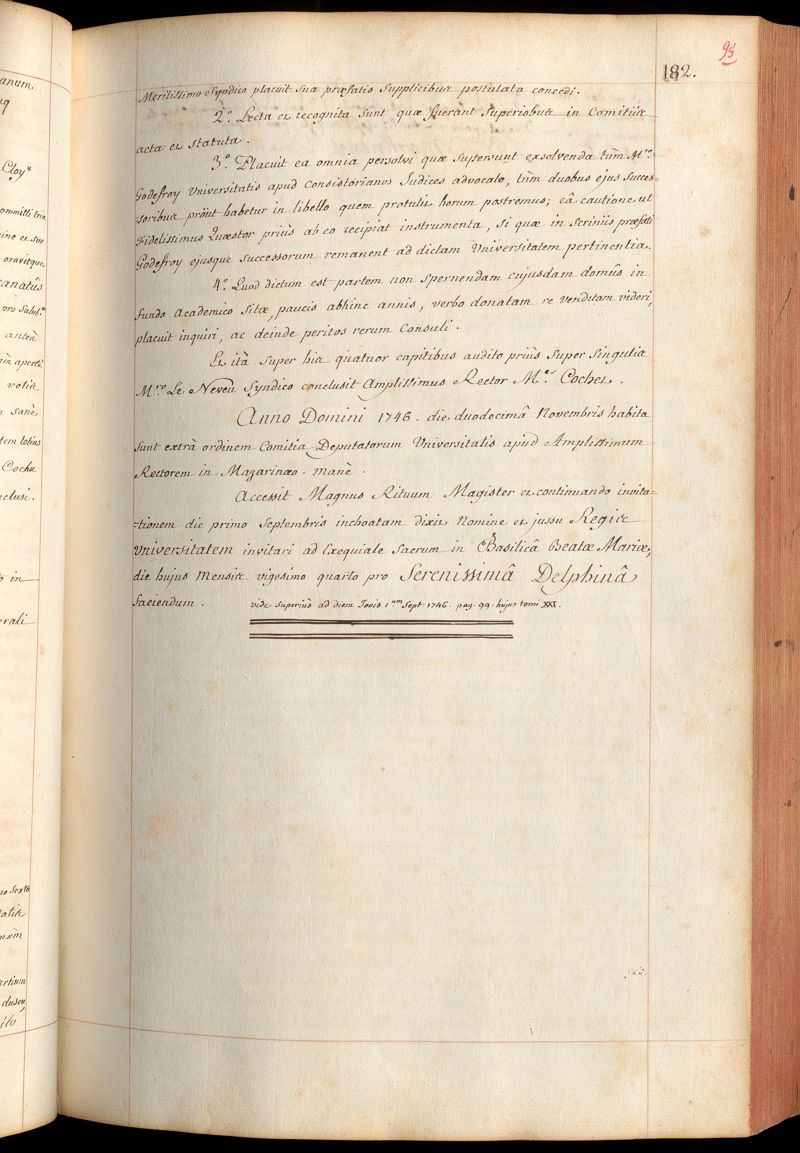 93
182.
Meritissimo Syndico placuit sua præfatis Supplicibus postulata concedi.
2.º Lecta et recognita sunt quæ fuerant superioribus in Comitiis
acta et statuta.
3.º Placuit ea omnia persolvi quæ supersunt exsolvenda tùm M.ro
Godefroy Universitatis apud Consistorianos Judices advocato, tùm duobus ejus succes=
=soribus pròut habetur in libello quem protulit horum postremus; eâ cautione ut
Fidelissimus Quæstor priùs ab eo recipiat instrumenta, si quæ in scriniis præfati
Godefroy ejusque successorum remanent ad dictam Universitatem pertinentia.
4.º Quod dictum est partem non spernendam cujusdam domûs in
fundo Academico sitæ, paucis abhinc annis, verbo donatam re venditam videri,
placuit inquiri, ac deinde peritos rerum consuli.
Et ità super his quatuor capitibus audito priùs super singulis
M.ro Le Neveu Syndico conclusit Amplissimus Rector M.er Cochet.
Anno Domini 1746. die duodecimâ Novembris habita
sunt extrà ordinem Comitia Deputatorum Universitatis apud Amplissimum
Rectorem in Mazarinæo. manè.
Accessit Magnus Rituum Magister et continuando invita=
=tionem die primo Septembris inchoatam dixit Nomine et jussu Regis
Universitatem invitari ad Exequiale Sacrum in Basilicâ Beatæ Mariæ,
die hujus mensis vigesimo quarto pro Serenissimâ Delphinâ
faciendum. vide superiùs ad diem Jovis 1.um Sept 1746. pag. 99. hujus tomi XXI.